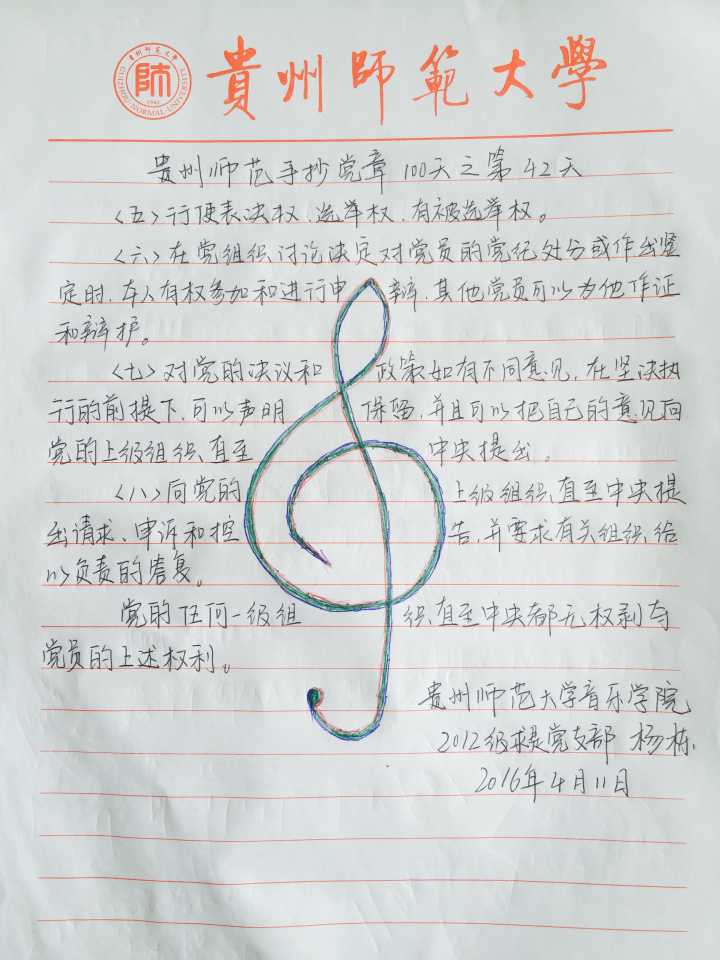 貴州師範大學
貴州師范大学
GUIZHOU·NORMAL·UNIVERSITY
1941
贵州师范手抄党章100天之第42天
〈五〉行使表决权、选举权，有被选举权。
〈六〉在党组织讨论决定对党员的党纪处分或作出鉴
定时，本人有权参加和进行申辩，其他党员可以为他作证
和辩护。
〈七〉对党的决议和政策如有不同意见，在坚决执
行的前提下，可以声明保留，并且可以把自己的意见向
党的上级组织直至中央提出。
〈八〉向党的上级组织直至中央提
出请求、申诉和控告，并要求有关组织给
以负责的答复。
党的任何一级组织直至中央都无权剥夺
党员的上述权利。
贵州师范大学音乐学院
2012级求是党支部 杨栋
2016年4月11日